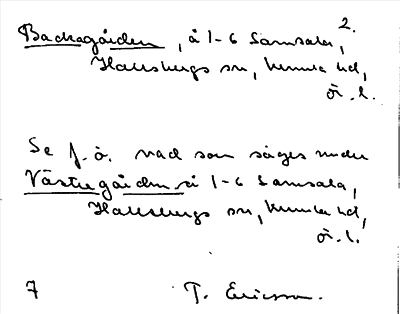 2.
Backagården, å 1-6 Samsala,
Hallsbergs sn, Kumla hd,
Ö. l.
Se f. ö. vad som säges under
Västergården å 1-6 Samsala,
Hallsbergs sn, Kumla hd,
Ö. l.
7 T. Ericsson.